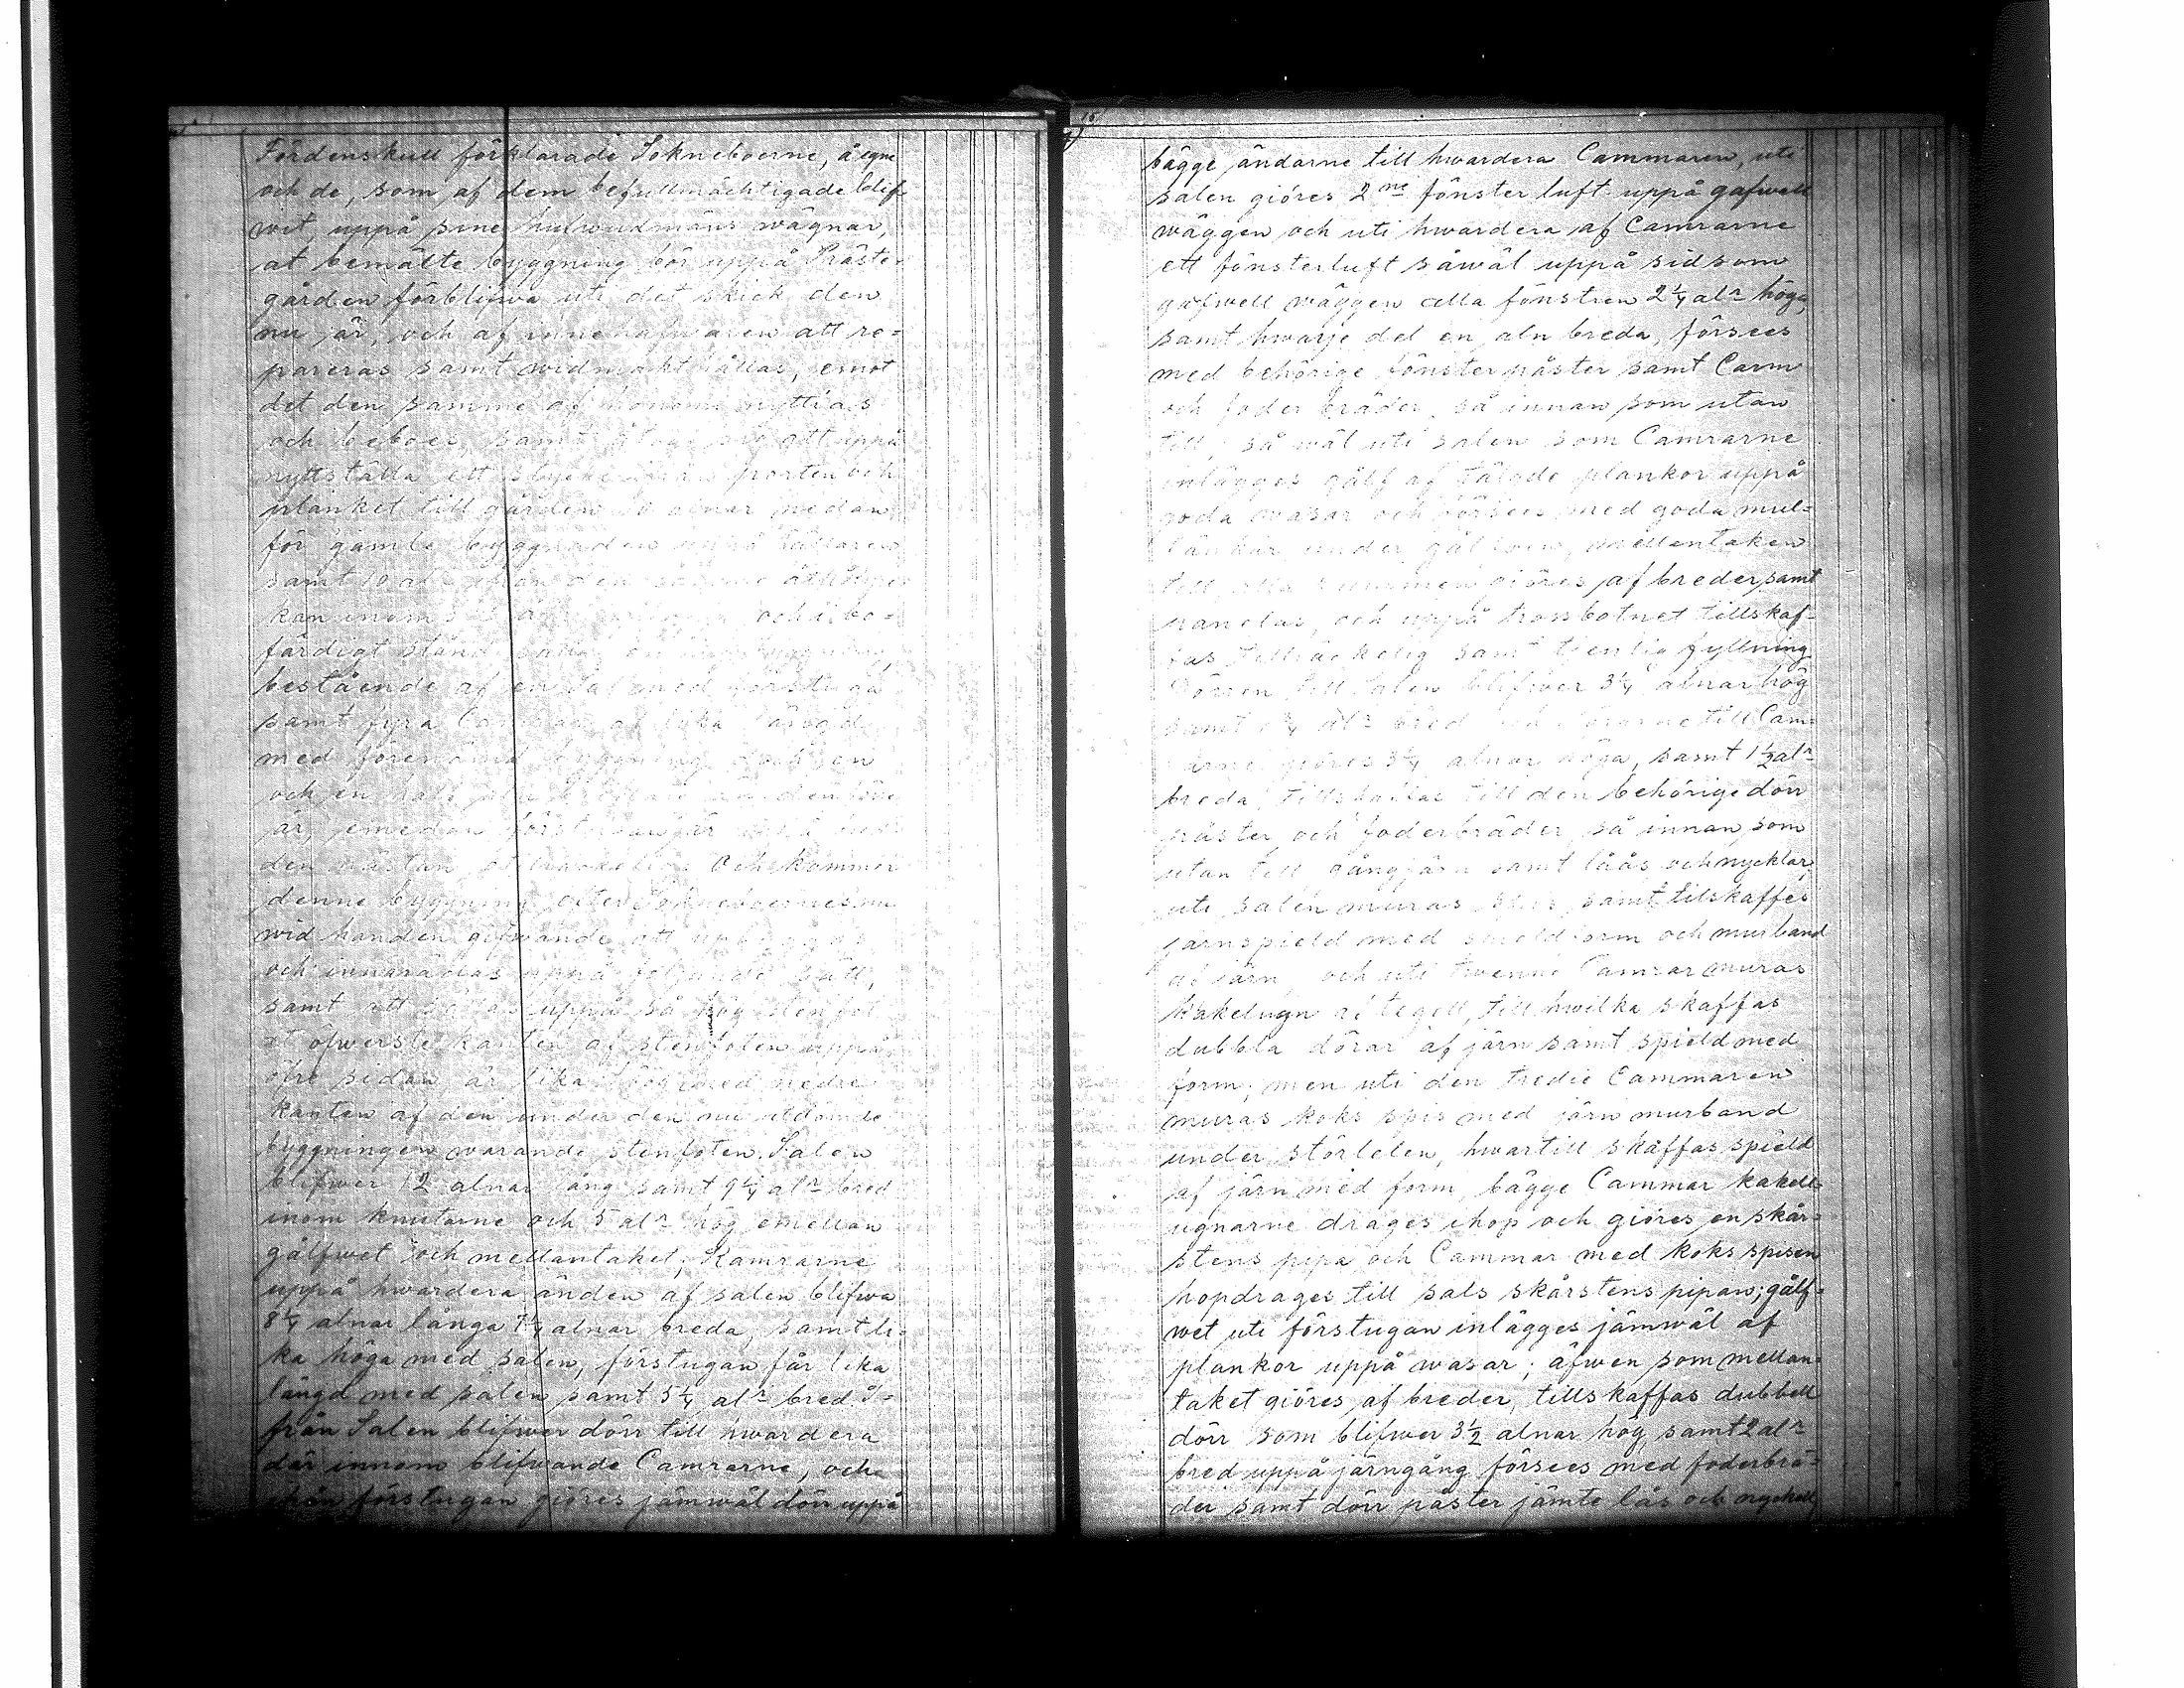 Fördenskull förklarade Sokneboerne, ä egne
och de, som af dem befullmächtigade blif-
wit, uppå sine hufwudmäns wägnar,
at bemälte byggning bör uppå Präste-
gården förblifwa uti det skick den
nu är, och af innehafwaren att re=
pareras samt widmakt hållas, emot
det den samme af honom nyttias
och beboes, samt åtogo sig att uppå
nyttställa ett stycke ifrån porten och
planket till gården alnar nedan
för gamle byggnaden uppå hällaren
samt 10 al den
kan inom och i bo=
färdigt stånd en byggning,
bestående af en Sal med förstuga
samt fyra Camrar af lika längd
med förenämd byggning och en
och en half
är, emedan förstugan är
den nästan Och kommer
denne byggning efter Sokneboernes nu
wid handen gifwande att upbyggas
och innanredas uppå följande sätt,
samt att sättas uppå så hög stenfot
at öfwerste kanten af stenfoten uppå
öfre sidan är lika hög med nedre
kanten af den under den nu utdömde
byggningen warande stenfoten. Salen
blifwer 12 alnar lång samt 9 1/4 alr bred
inom knutarne och 5 alr hög emellan
gålfwet och mellantaket; Kamrarne
uppå hwardera änden af salen blifwa
8 1/4 alnar långa 7 1/4 alnar breda, samt li-
ka höga med salen, förstugan får lika
längd med salen samt 5 1/4 alr bred. I-
från Salen blifwer dörr till hwardera
där innom blifwande Camrarne, och
ifrån förstugan giöres jämwäl dörr uppå
bägge ändarne till hwardera Cammaren, uti
salen giöres 2ne fönster luft uppå gafwell
wäggen och uti hwardera af Camrarne
ett fönsterluft såwäl uppå sid som
gafwell wäggen alla fönstren 2 1/4 alr höga,
samt hwarje del en aln breda, försees
med behörige fönster påster samt Carm
och foder bräder, så innan som utan
till, så wäl uti salen som Camrarne
inlägges gålf af täljde plankor uppå
goda wasar och försees med goda mul=
bänkar under gålfwen, mellentaken
till alla rummen giöres af breder samt
panelas, och uppå trossbotnet tillskaf-
fas tillräckelig samt tjenlig fyllning
Dörren till Salen blifwer 3 1/4 alnar hög
samt alr bred och dörarne till Cam-
rarne giöres 3 1/4 alnar höga, samt 1 1/2 alr
breda, tillskaffas till den behörige dörr
påster och foderbräder, så innan som
utan till gångjärn samt låås och nycklar,
uti salen muras spis, samt tilskaffes
järnspield med spieldform och murband
af järn, och uti twenne Camrar muras
kakelugn af tegell, till hwilka skaffas
dubbla dörar af järn samt spield med
form; men uti den tredie Cammaren
muras koks spis med järn murband
under störleken, hwartill skaffas spield
af järn med form, bägge Cammar kakell-
ugnarne drages ihop och giöres en skår-
stens pipa och Cammar med koks spisen
hopdrages till sals skårstens pipan; gålf-
wet uti förstugan inlägges jämwäl af
plankor uppå wasar; äfwen som mellan-
taket giöres af breder, tillskaffas dubbell
dörr som blifwer 3 1/2 alnar hög samt 2 alr
bred uppå järngång försees med foderbrä-
der samt dörr påster jämte lås och nyckell